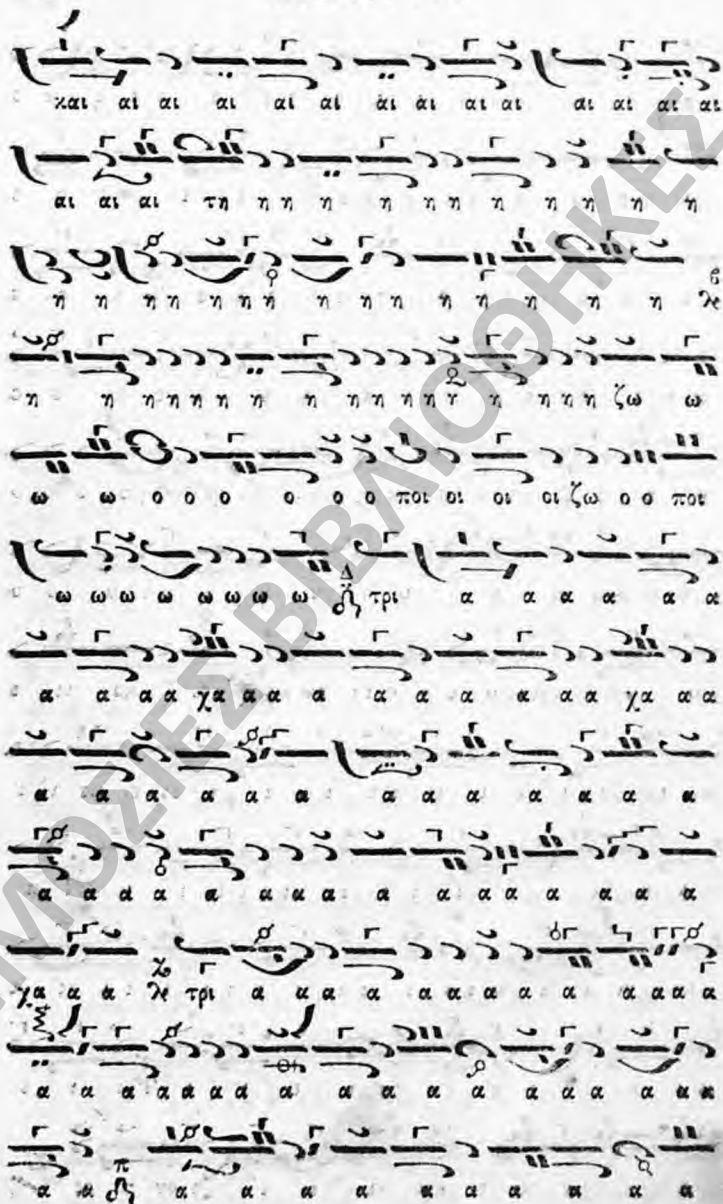 και αι αι αι αι αι αι αι αι αι αι αι αι αι
αι αι αι τη η η η η η η η η η η η η
η η η η η η η η η η η η η η η
η η η η η η η η η η η η η η η η ζω ω
ω ω ο ο ο ο ο ο ποι οι οι οι ζω ο ο ποι
ω ω ω ω ω ω ω ω Δ τρι α α α α α α
α α α α χα α α α α α α α α α α χα α α
α α α α α α α α α α α α α α
α α α α α α α α α α α α α α α α
χα α α τρι α α α α α α α α α α α α α α α
α α α α α α α α α α α α α α α α
α α π α α α α α α α α α
ΔΗΜΟΣΙΕΣ ΒΙΒΛΙΟΘΗΚΕΣ